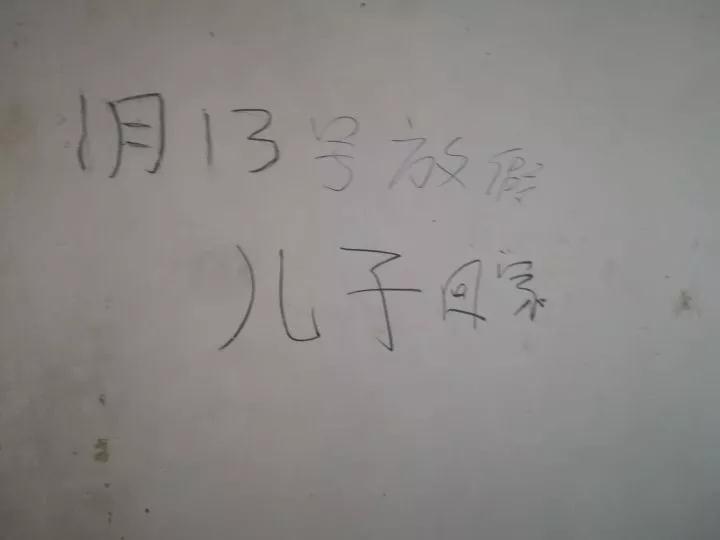 1月13号放假
儿子回家